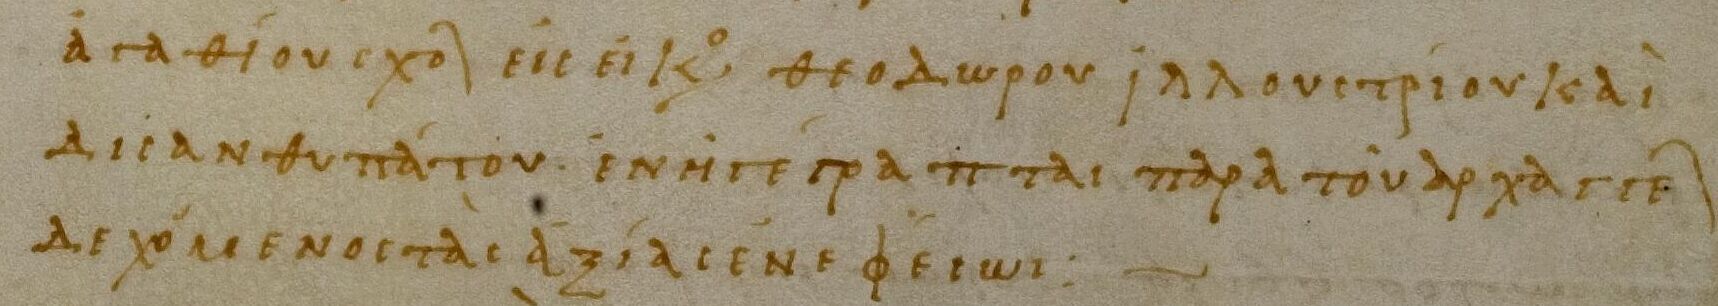 ἀγαθίου σχολ εἰς εἰκο θεοδώρου ἰλλουστρίου καὶ
δὶς ἀνθυπάτου· ἐν ἧ γέγραπται παρὰ τοῦ ἀρχαγγέ
δεχόμενος τὰς ἀξίας ἐν ἐφέσωι: